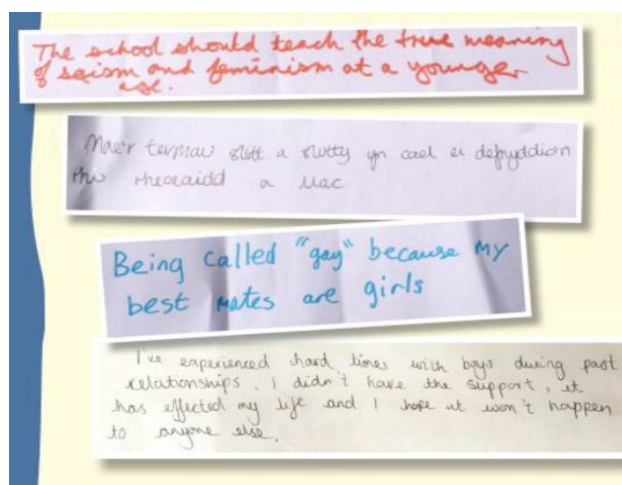 The school should teach the true meaning
of sexism and feminism at a younger
age.
Mae'r termau slutt a slutty yn cael ei defnyddion
rhwng a
Being called "gay" because my
best mates are girls
I've experienced hard times with boys during past
relationships. I didn't have the support, it
has effected my life and I hope it won't happen
to anyone else.